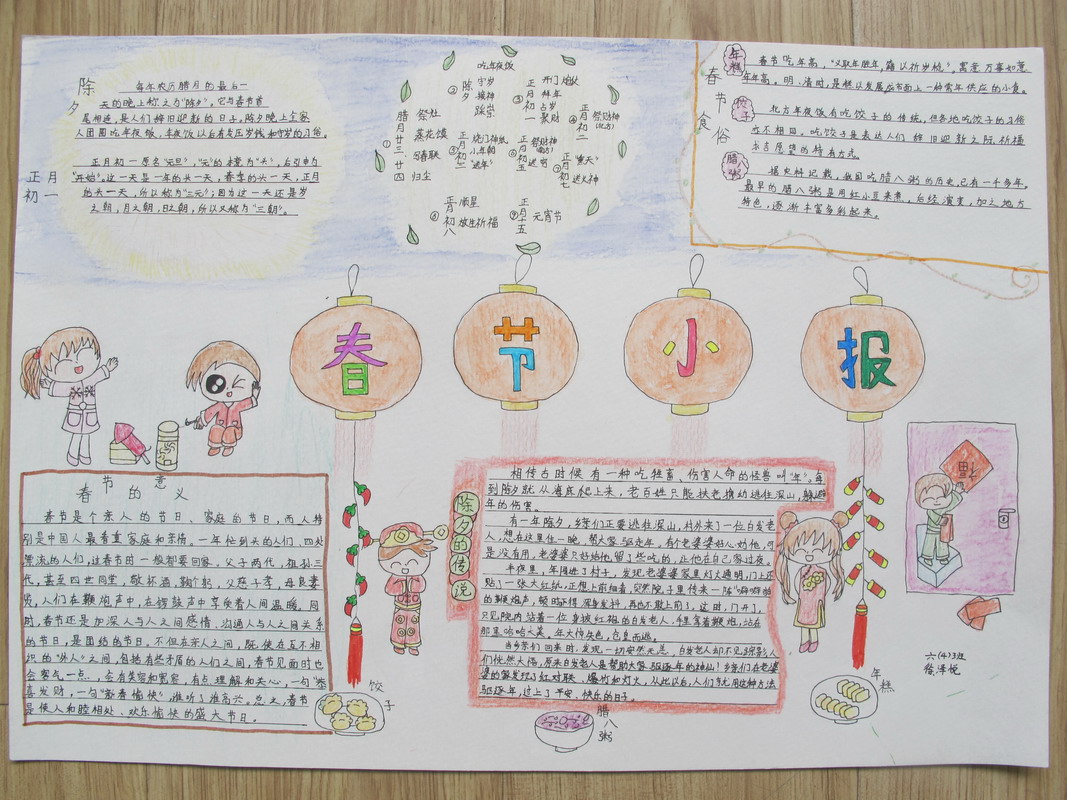 除夕
每年农历腊月的最后一
天的晚上称之为"除夕"。它与春节首
尾相连,是人们辞旧迎新的日子。除夕晚上全家
人团圆吃年夜饭,年夜饭以后有发压岁钱和守岁的习俗。
正月初一
正月初一原名"元旦","元"的本意为"头",后引申为
"开始"。这一天是一年的头一天,春季的头一天,正月
的头一天,所以称为"三元";因为这一天还是岁
之朝,月之朝,日之朝,所以又称为"三朝"。
①腊月廿三 廿四
祭灶
蒸花馍
写春联
归尘
②除夕
吃年夜饭
守岁
接神
踩祟
③正月初一
开门炮仗
拜年
占岁
聚财
④正月初二
祭财神
(北方)
小年朝
⑥正月初五
祭财神
送穷
⑦正月初七
"熏天"
送火神
⑧正月初八
顺星
放生祈福
⑨正月十五
元宵节
春节食俗
年糕
春节吃年高,"义取年胜年,籍以祈岁稔",寓意万事如意
年年高。明、清时,是糕以发展成市面上一种常年供应的小食。
饺子
北方年夜饭有吃饺子的传统,但各地吃饺子的习俗
亦不相同。吃饺子是表达人们辞旧迎新之际祈福
求吉愿望的特有方式。
腊八粥
据史料记载,我国吃腊八粥的历史,已有一千多年。
最早的腊八粥是用红小豆来煮,后经演变,加之地方
特色,逐渐丰富多彩起来。
春节小报
福
春节的意义
春节是个亲人的节日、家庭的节日,而人特
别是中国人最看重家庭和亲情。一年忙到头的人们、四处
漂流的人们,过春节时一般都要回家。父子两代,祖孙三
代,甚至四世同堂,敬杯酒,鞠个躬,父慈子孝,母良妻
贤,人们在鞭炮声中,在锣鼓声中享受着人间温暖。同
时,春节还是加深人与人之间感情,沟通人与人之间关系
的节日,是团结的节日。不但在亲人之间,既使在互不相
识的"外人"之间,包括有些矛盾的人们之间,春节见面时也
会客气一点,会有笑容和宽容,有点理解和关心,一句"恭
喜发财,一句"新春愉快",谁听了谁高兴。总之,春节
是使人和睦相处、欢乐愉快的盛大节日。
饺子
除夕的传说
相传古时候有一种吃牲畜、伤害人命的怪兽叫"年"。每
到除夕就从海底爬上来,老百姓只能扶老携幼逃往深山,躲避
年的伤害。
有一年除夕,乡亲们正要逃往深山,村外来了一位白发老
人,想在这里住一晚,帮大家驱走年。有个老婆婆好心劝他,可
是没有用,老婆婆只好给他留了些吃的,让他在自己家过夜。
半夜里,年闯进了村子,发现老婆婆家里灯火通明,门上还
贴了一张大红纸,正想上前细看,突然院子里传来一阵"噼噼啪啪
的鞭炮声,顿时吓得浑身发抖,再也不敢上前了。这时,门开了,
只见院内站着一位身披红袍的白发老人,手里拿着鞭炮,站在
那里哈哈大笑。年大惊失色,仓皇而逃。
当乡亲们回来时,发现一切安然无恙,白发老人却不见踪影,人
们恍然大悟,原来白发老人是帮助大家驱逐年的神仙!乡亲们在老婆
婆的家发现了红对联、爆竹和灯火,从此以后,人们争先用这种方法
驱逐年,过上了平安、快乐的日子。
腊八粥
年糕
六(4)班